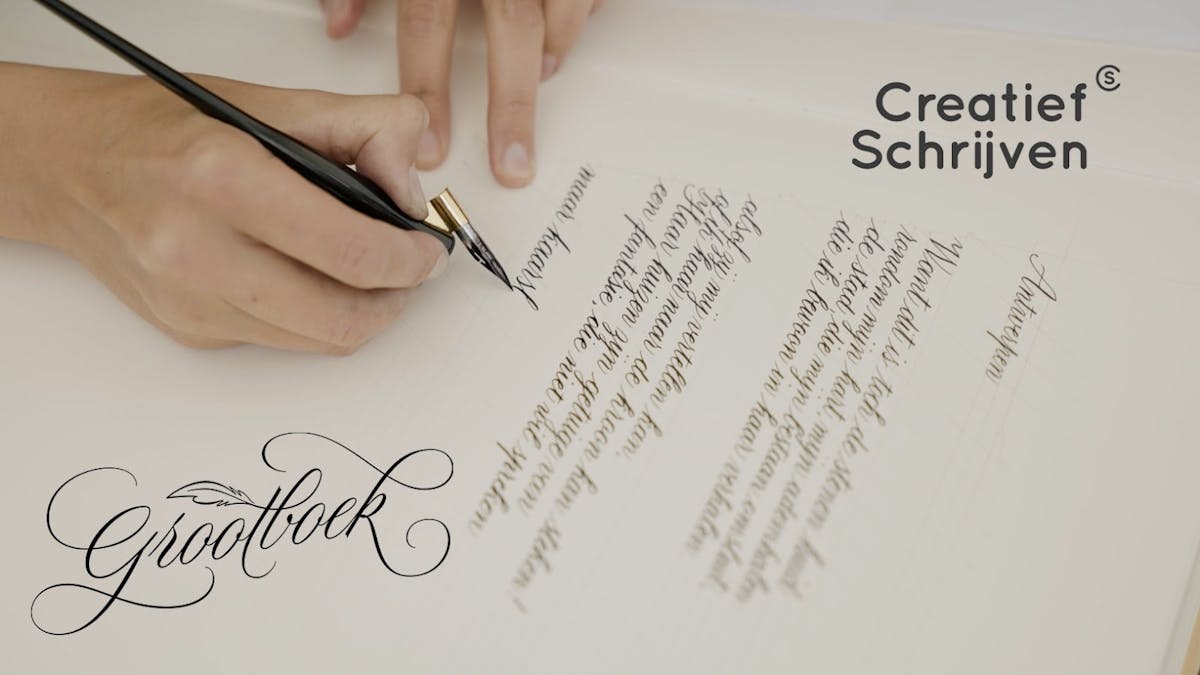 Creatief
Schrijven
Antwerpen
Want dit is toch de stenen huid
rondom mijn hart, mijn ademhalen
de stad, die mijn bestaan omsluit,
die ik bewoon in haar verhalen
alsof zij mij vertellen kan,
of ik haar naar de kroon kan steken!
Haar huizen zijn getuige van
een fantasie, die niet wil spreken
maar
Grootboek